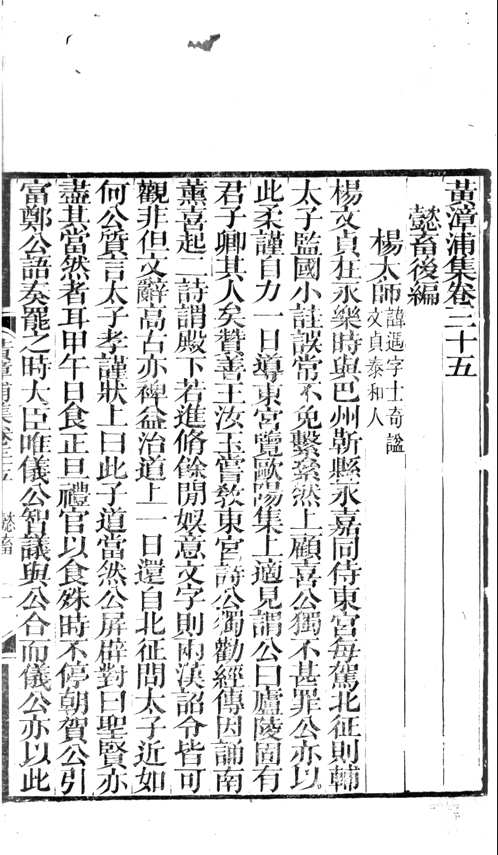 黃漳浦集卷三十五
懿畜後編
楊太師諱遇字士奇謚
文貞泰和人
楊文貞在永樂時與巴州蘄縣永嘉同侍東宮每駕北征則輔
太子監國小詿誤常不免繫纍然上顧喜公獨不甚罪公亦以
此柔謹自力一日導東宮覽歐陽集上適見謂公曰廬陵固有
君子卿其人矣贊善王汝玉嘗敎東宮詩公獨勸經傳因誦南
薰喜起二詩謂殿下若進脩餘閒娛意文字則兩漢詔令皆可
觀非但文辭高古亦裨益治道上一日還自北征問太子近如
何公質言太子孝謹狀上曰此子道當然公屏辟對曰聖賢亦
盡其當然者耳甲午日食正旦禮官以食殊時不停朝賀公引
富鄭公語奏罷之時大臣唯儀公智議與公合而儀公亦以此
黃漳浦集卷三十五 懿畜 一